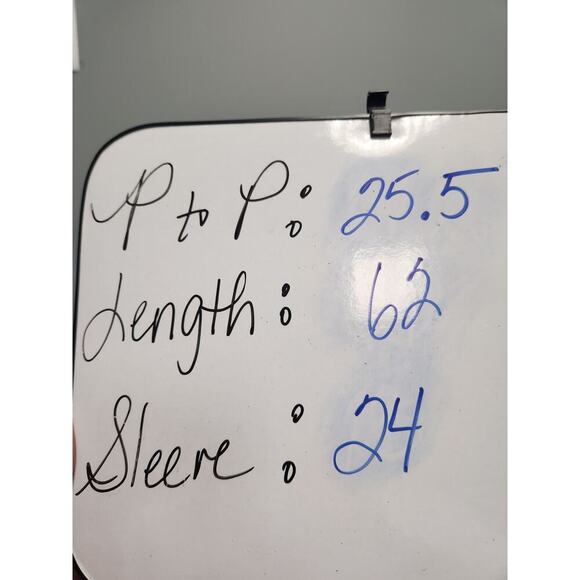 P to P: 25.5
Length: 62
Sleeve: 24